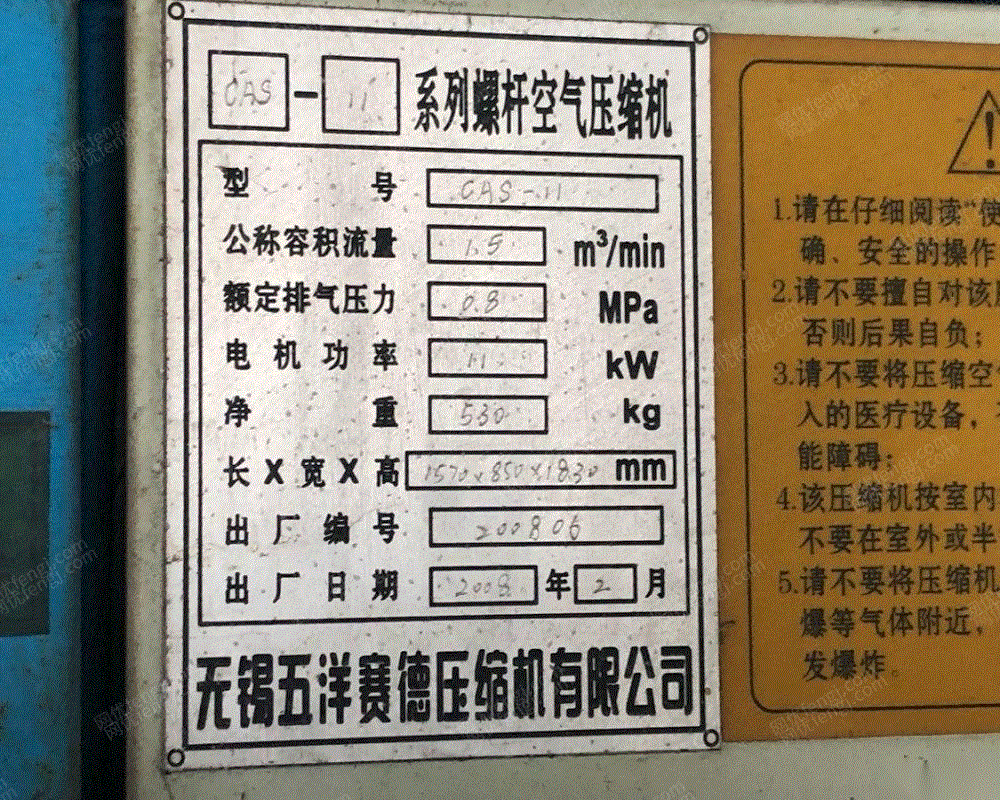 CAS - 11 系列螺杆空气压缩机
型 号 CAS-11
公称容积流量 1.5 m³/min
额定排气压力 0.8 MPa
电机功率 11 kW
净 重 530 kg
长X宽X高 1570x850x1830 mm
出厂编号 200806
出厂日期 2008 年 2 月
无锡五洋赛德压缩机有限公司
1.请在仔细阅读“使
确、安全的操作
2.请不要擅自对该
否则后果自负；
3.请不要将压缩空气
入的医疗设备，
能障碍；
4.该压缩机按室内
不要在室外或半
5.请不要将压缩机
爆等气体附近，
发爆炸。